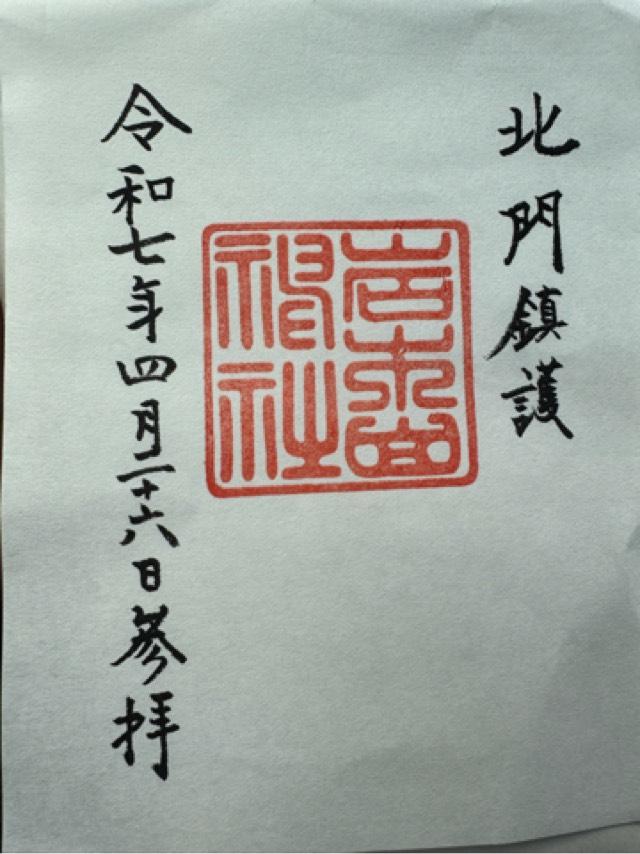 北門鎮護
岩木山
神社
令和七年四月二十六日参拝